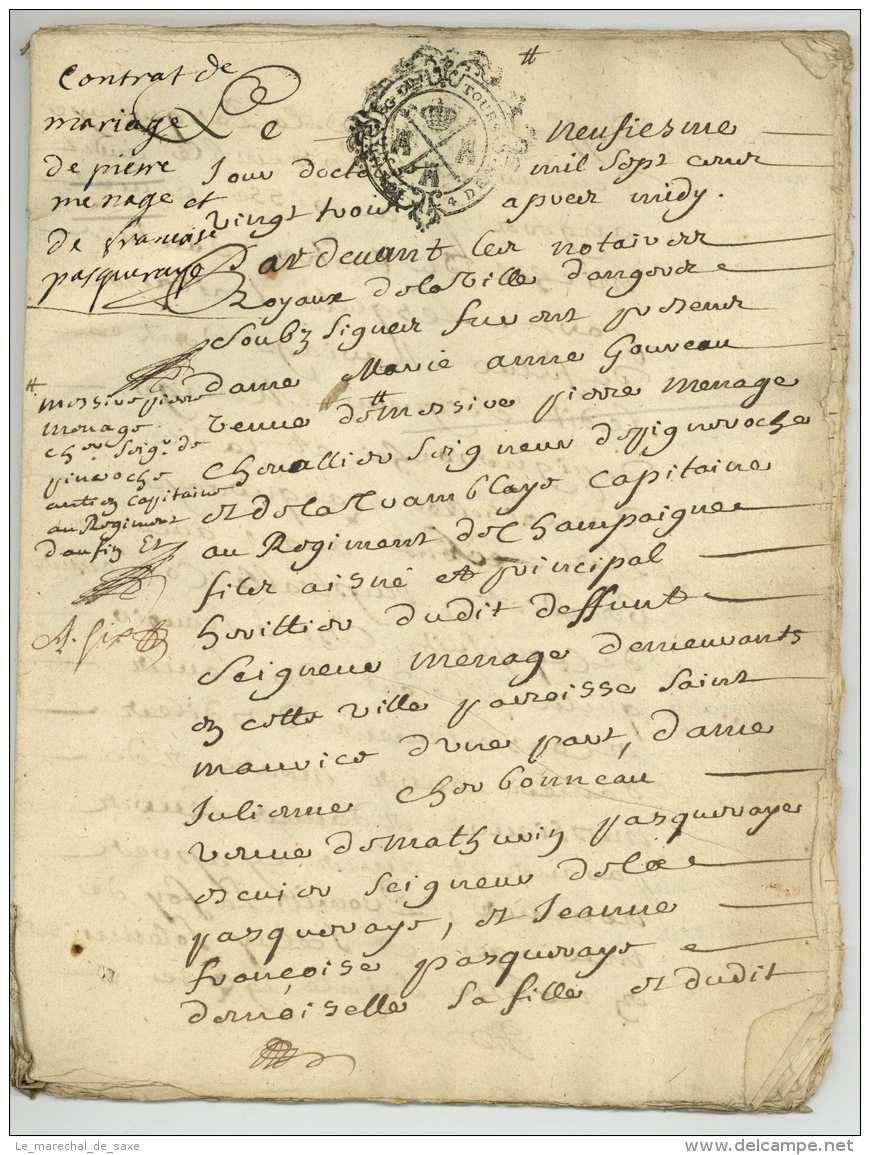 Contrat de
mariage
de pierre
menage et
de francoise
pasqueraye
Le neufiesme
Jour docto mil sept cens
vingt trois apres midy.
Pardevant les notaires
Royaux dela Ville dangers
Soubz signes furent presens
dame Marie anne Gouveau
veuve de messire pierre menage
Chevallier Seigneur de pigneroche
et dela capitaine
au Regiment de Champaigne
fils aisné et principal
heritier dudit deffunt
Seigneur menage demeurants
en cette ville paroisse Saint
maurice dune part, dame
Julienne Charbonneau
veuve de mathurin pasqueraye
escuier Seigneur dela
pasqueraye, et Jeanne
françoise pasqueraye
demoiselle sa fille et dudit
messire pierre
menage
cher Seigr. de
pineroche
antien capitaine
au Regiment
daufin Et
TOURS
Le_marechal_de_saxe
delcampe.net